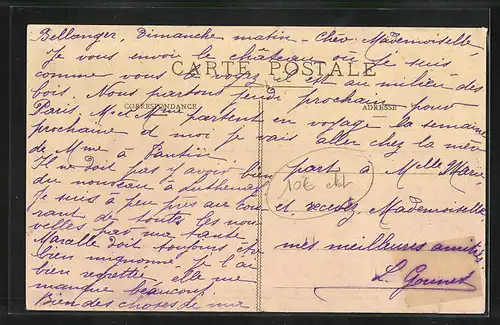 Bellanger, Dimanche matin - Chère Mademoiselle,
Je vous envoi le château où je suis
CARTE POSTALE
comme vous le voyez il est au milieu des
bois. Nous partons jeudi prochain pour
CORRESPONDANCE
ADRESSE
Paris. M. et Mme partent en voyage la semaine
prochaine et moi je vais aller chez la mère
de Mme à Pantin
Il ne doit pas y avoir bien
du nouveau à
je suis à peu près au cou-
rant de toutes les nou-
velles par ma tante.
doit toujours être
bien mignonne - je l'ai
bien regrettée elle me
manque beaucoup.
Bien des choses de ma
part à Melle Marie
et recevez Mademoiselle
mes meilleures amitiés
L. Gounet
10€